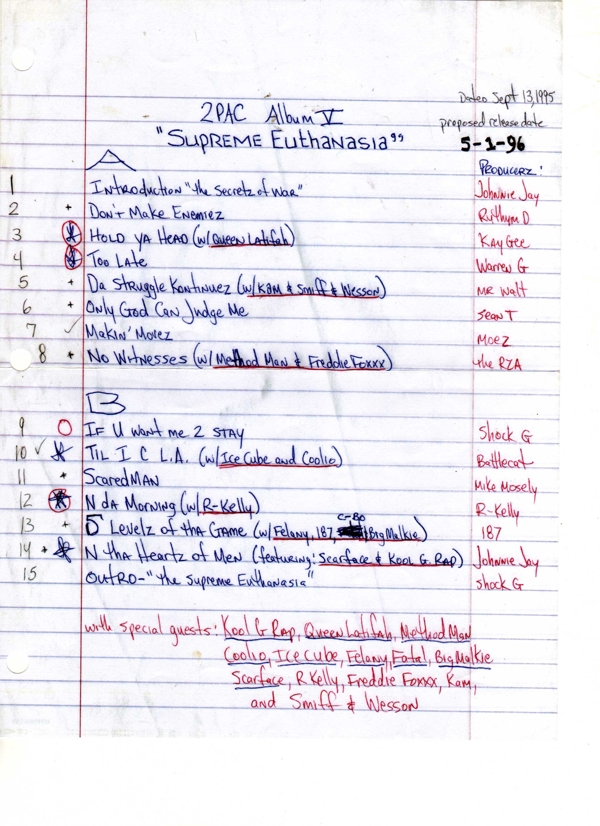 Dated Sept 13, 1995
2PAC Album V
proposed release date
"SUPREME EuthanaSIa"
5-1-96
A
PRODUCERZ:
1 INTRODUCTION "the Secretz of War" Johnnie Jay
2 + DON'T MAKE ENEMIEZ Rythym D
3 HOLD YA HEAD (w/QUEEN LATIFAH) KAY GEE
4 TOO LATE WARREN G
5 + DA STRUGGLE KONTINUEZ (w/KAM & Smiff & Wesson) MR WALT
6 + ONLY GOD CAN JUDGE ME SEAN T
7 ✓ MAKIN' MOVEZ MOE Z
8 + NO WITNESSES (w/Method Man & Freddie Foxxx) the RZA
B
9 O IF U WANT ME 2 STAY Shock G
10 ✓ TIL I C L.A. (w/ICE CUBE and COOLIO) Battlecat
11 + SCAREDMAN Mike Mosely
12 N DA MORNING (w/R-Kelly) R-Kelly
C-BO
13 + 5 LEVELZ OF THA GAME (w/Felany, 187, Big Malkie) 187
14 + N THA HEARTZ OF MEN (featuring: Scarface & KOOL G. RAP) Johnnie Jay
15 OUTRO-"the Supreme Euthanasia" Shock G
with special guests: KOOL G RAP, QUEEN LATIFAH, Method Man
COOLIO, ICE CUBE, Felany, Fatal, Big Malkie
Scarface, R Kelly, Freddie Foxxx, Kam,
and Smiff & Wesson